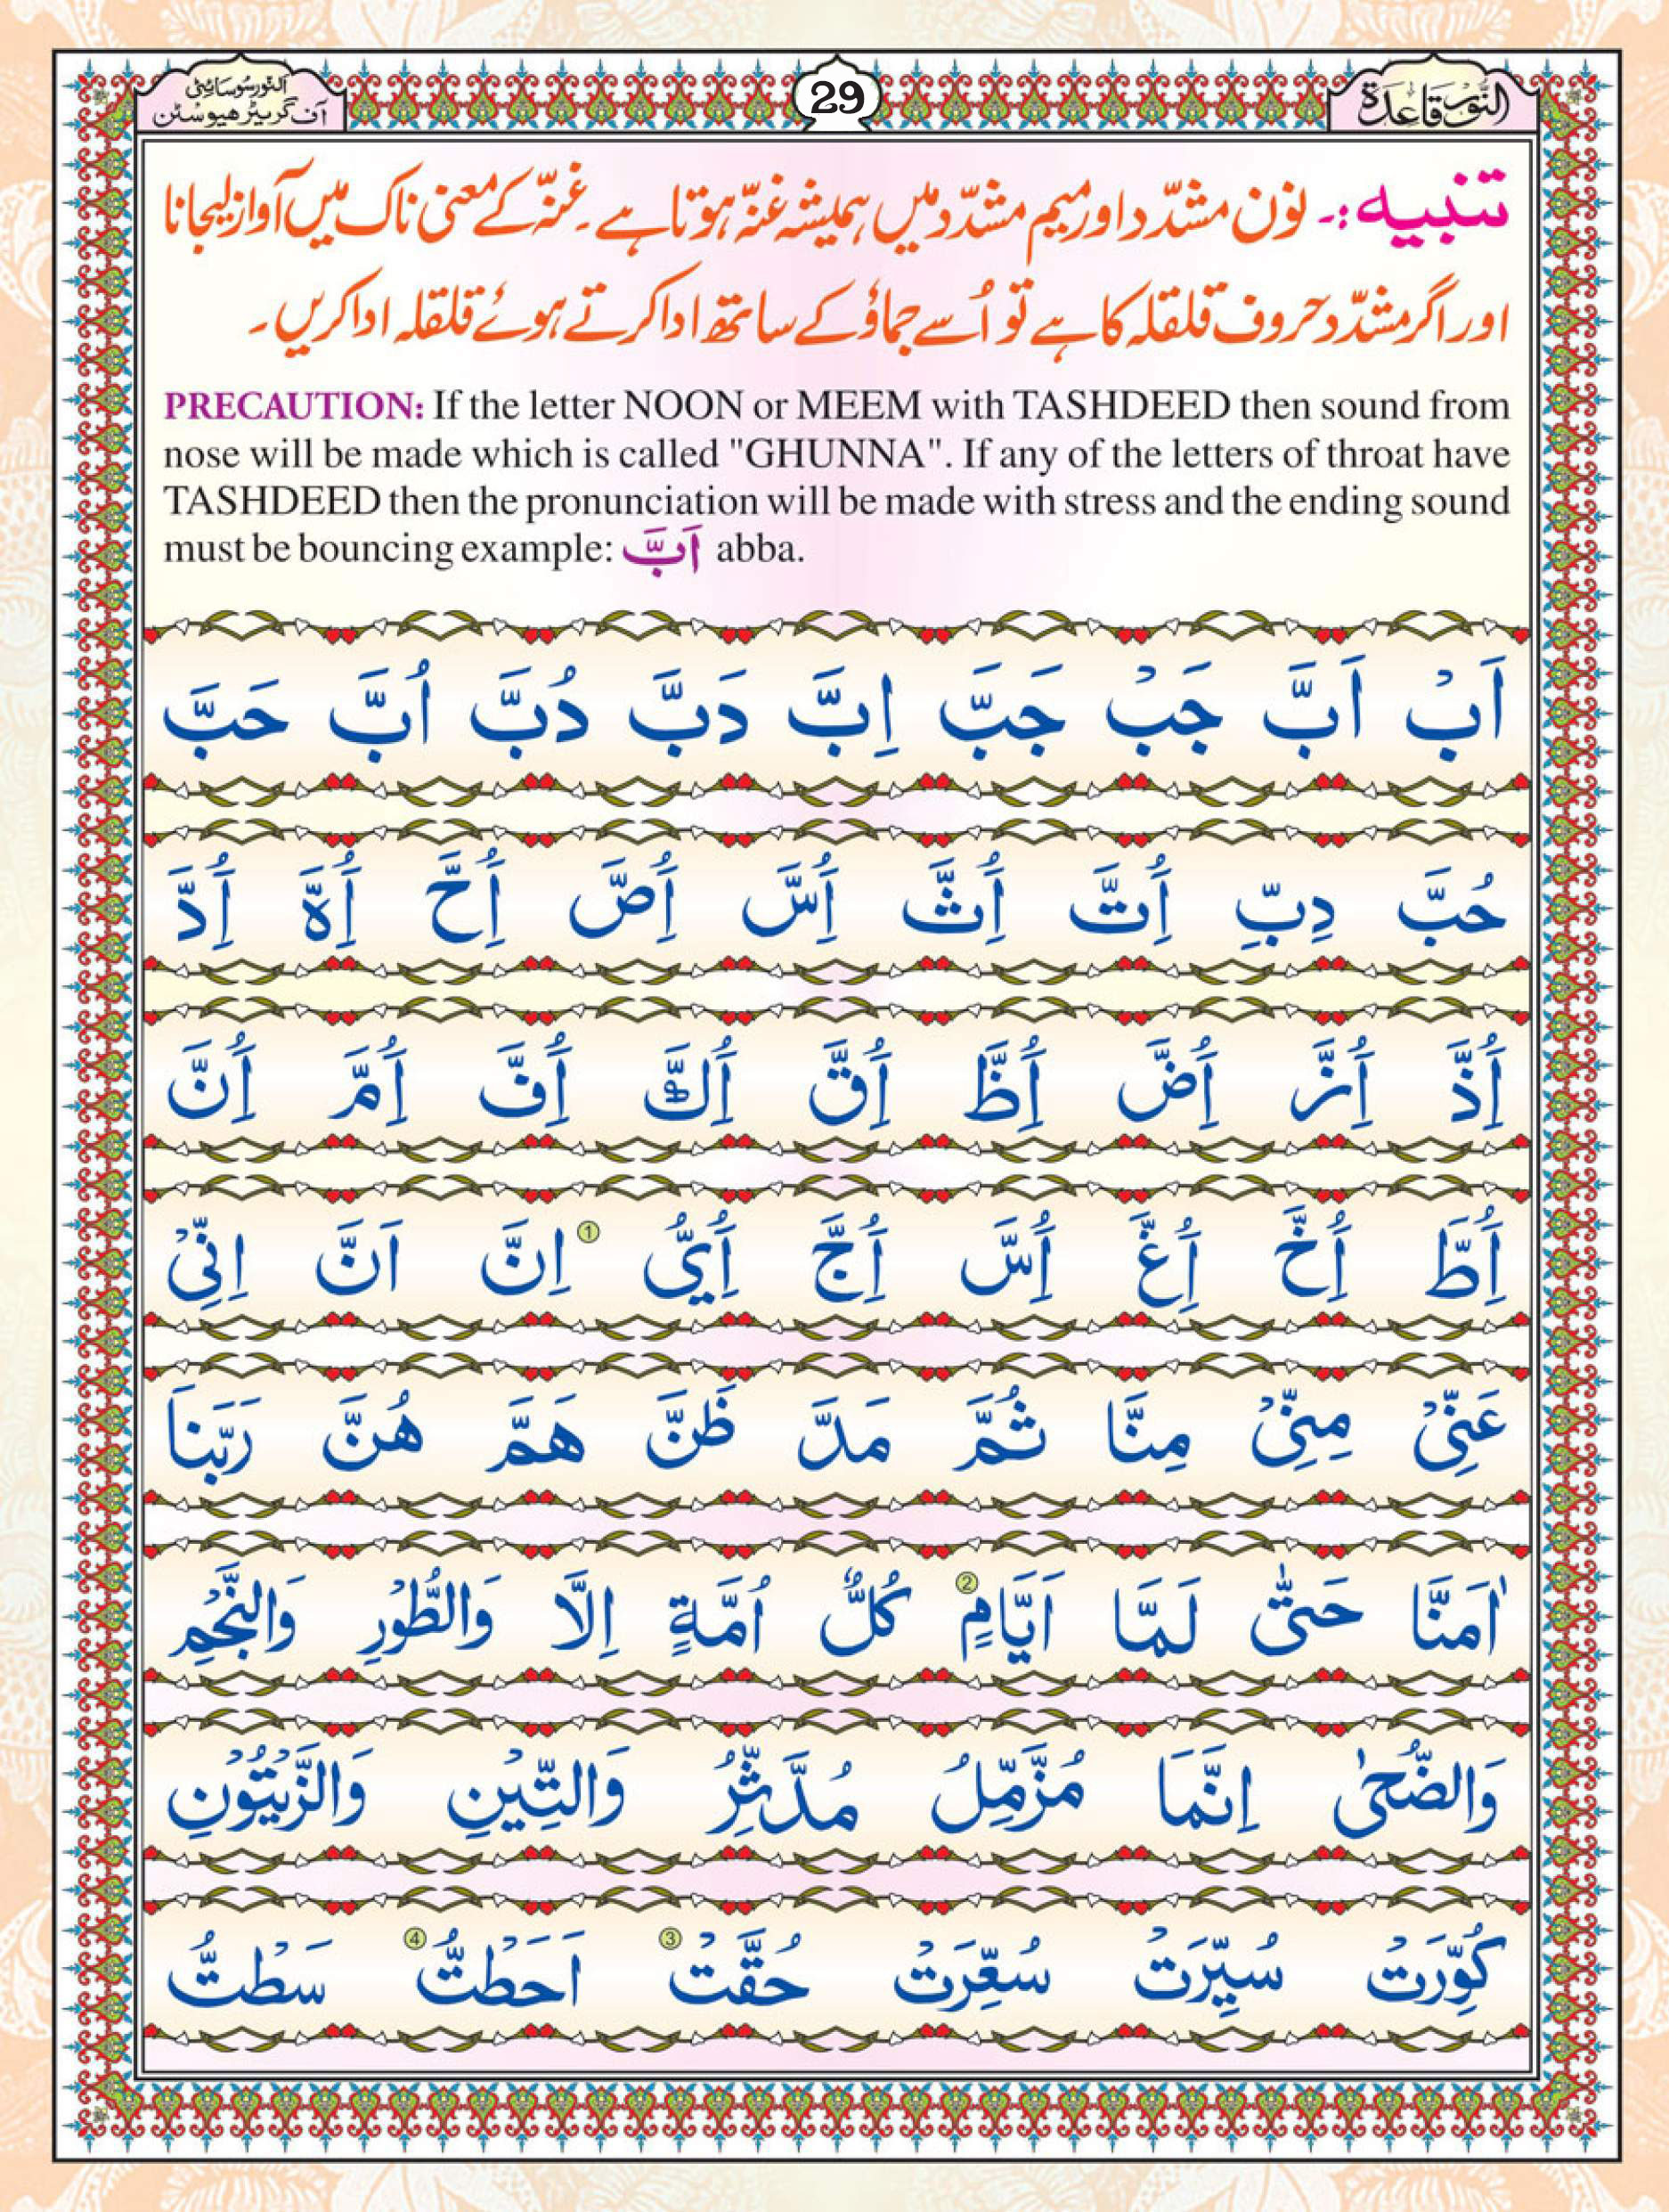 النُّوْر قَاعِدَة
29
النور سوسائٹی
آف گریٹر ھیوسٹن
تنبیہ :۔ نون مشدّد اور میم مشدّد میں ہمیشہ غنّہ ہوتا ہے ۔ غنّہ کے معنی ناک میں آواز لیجانا
اور اگر مشدّد حروف قلقلہ کا ہے تو اُسے جماؤ کے ساتھ ادا کرتے ہوئے قلقلہ ادا کریں ۔
PRECAUTION: If the letter NOON or MEEM with TASHDEED then sound from
nose will be made which is called "GHUNNA". If any of the letters of throat have
TASHDEED then the pronunciation will be made with stress and the ending sound
must be bouncing example: اَبَّ abba.
اَبْ اَبَّ جَبْ جَبَّ اِبَّ دَبَّ دُبَّ اُبَّ حَبَّ
حُبَّ دِبِّ اَُِتَّ اَُِثَّ اَُِسَّ اَُِصَّ اَُِحَّ اَُِهَّ اَُِدَّ
اَُِذَّ اَُِزَّ اَُِضَّ اَُِظَّ اَُِقَّ اَُِكَّ اَُِفَّ اَُِمَّ اَُِنَّ
اَُِطَّ اَُِخَّ اَُِغَّ اَُِسَّ اَُِجَّ اَُِيُّ اِنَّ ① اَنَّ اِنِّيْ
عَنِّيْ مِنِّيْ مِنَّا ثُمَّ مَدَّ ظَنَّ هَمَّ هُنَّ رَبَّنَا
اٰمَنَّا حَتّٰى لَمَّا اَيَّامٍ ② كُلٌّ اُمَّةٍ اِلَّا وَالطُّوْرِ وَالنَّجْمِ
وَالضُّحٰى اِنَّمَا مُزَّمِّلُ مُدَّثِّرُ وَالتِّيْنِ وَالزَّيْتُوْنِ
كُوِّرَتْ سُيِّرَتْ سُعِّرَتْ حُقَّتْ ③ اَحَطْتُّ ④ سَطْتُّ